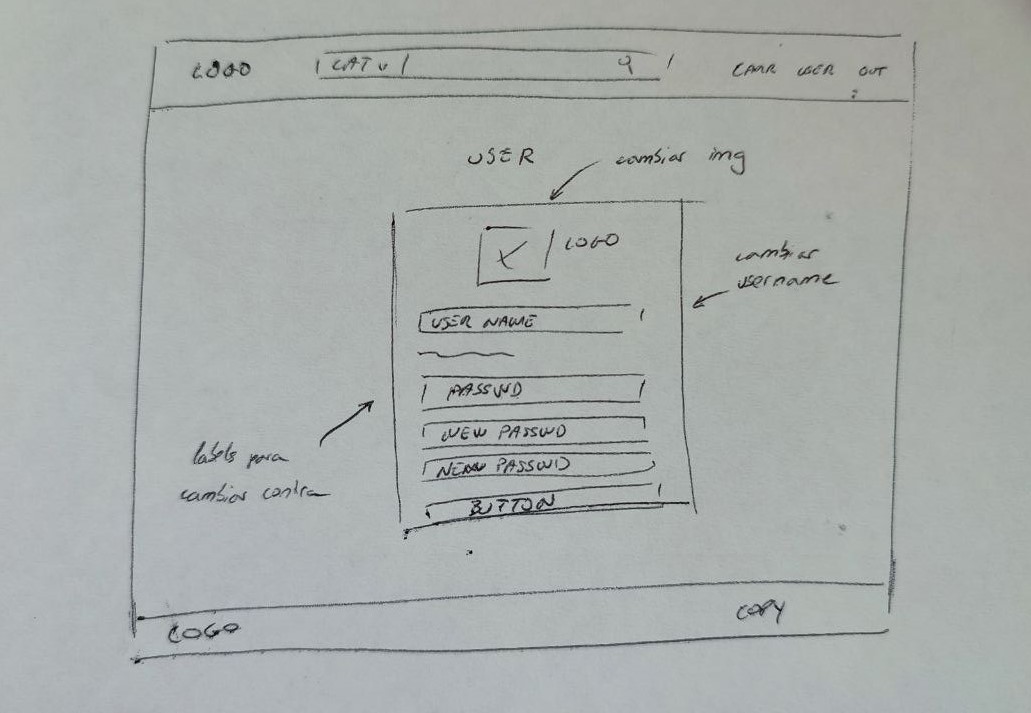 LOGO
CAT v
CARR USER OUT
USER
cambiar img
LOGO
cambiar
username
USER NAME
PASSWD
NEW PASSWD
NEW PASSWD
labels para
cambiar contra
BUTTON
LOGO
COPY